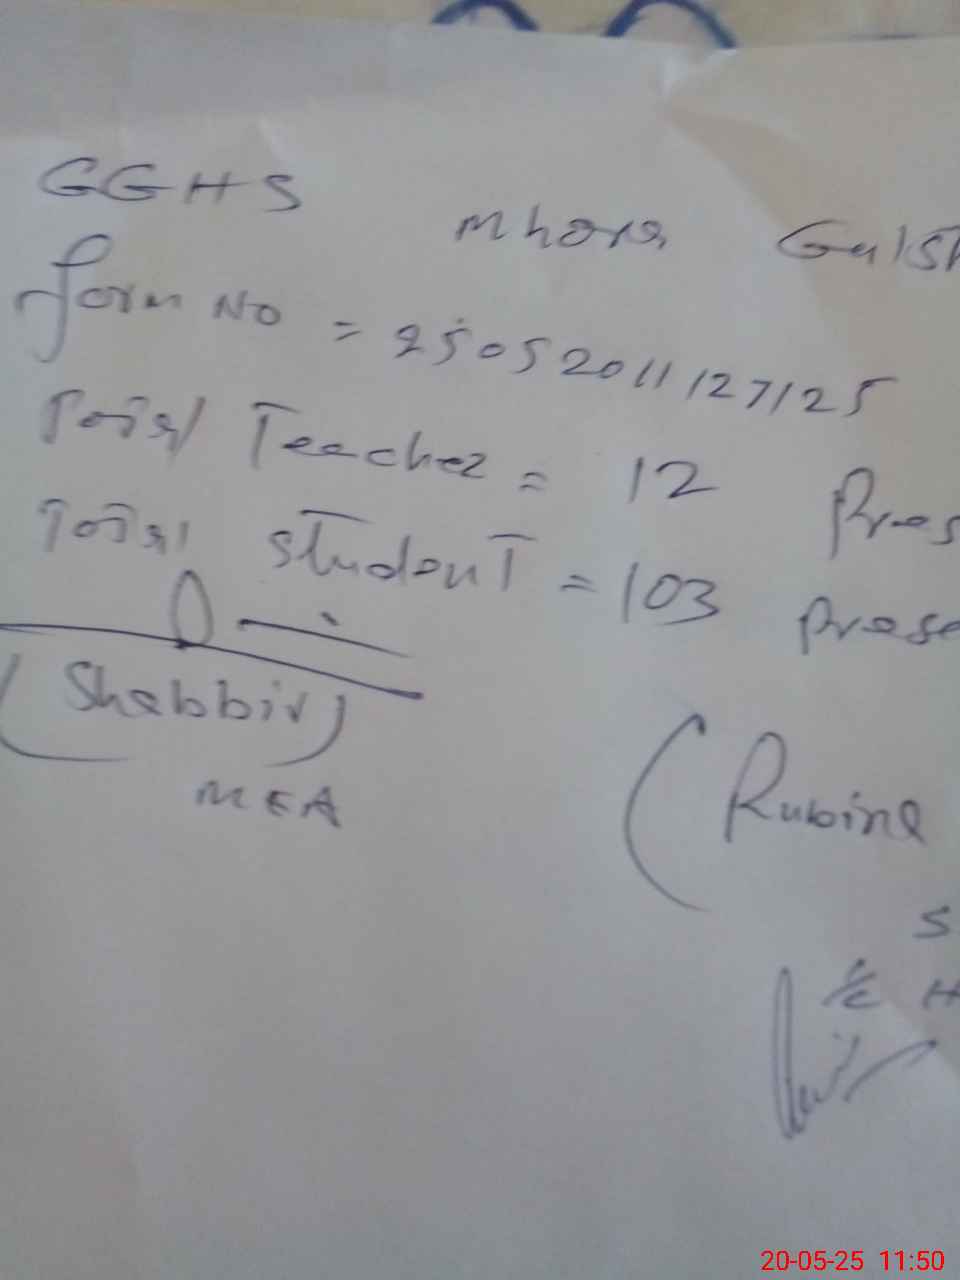 GGHS Mhora Gulsh
Form No = 25052011127125
Total Teacher = 12 Pres
Total Student = 103 Prese
(Shabbir)
MEA
(Rubina
S
I/C H
20-05-25 11:50